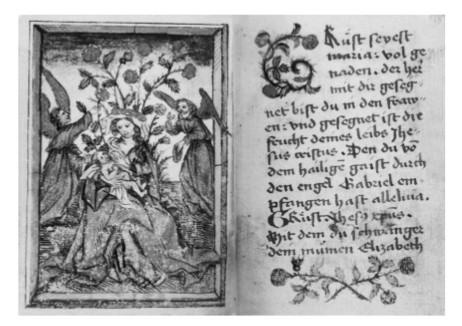 Grüst seyest
maria: vol ge
naden. der her
mit dir geseg-
net bist du in den fraw-
en: vnd gesegnet ist die
frucht deines leibs Jhe-
sus cristus. Den du vō
dem hailigē gaist durch
den engel Gabriel em-
pfangen hast alleluia.
Grüst Jhesꝯ xpus.
Mit dem du schwanger
dein mumen Elizabeth